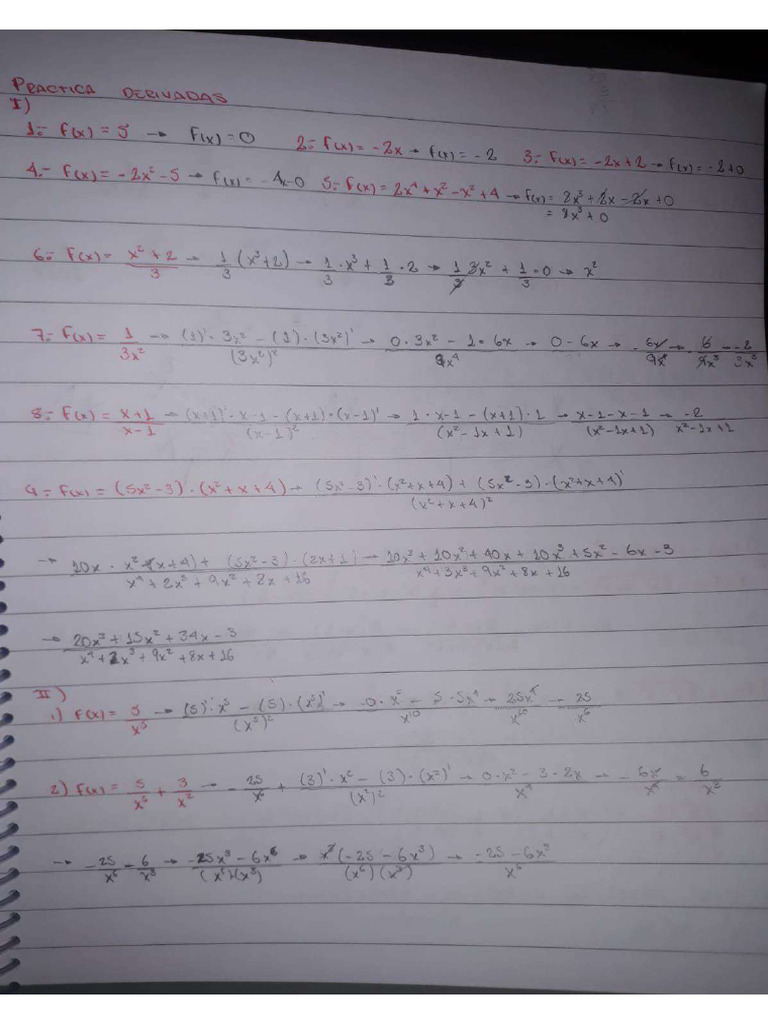 PRACTICA DERIVADAS
I)
1.- F(x) = 5 → F(x) = 0 2.- F(x) = -2x → F(x) = -2 3.- F(x) = -2x+2 → F(x) = -2+0
4.- F(x) = -2x² - 5 → F(x) = -4x-0 5.- F(x) = 2x⁴ + x² - x² + 4 → F(x) = 8x³ + 2x - 2x + 0
= 8x³ + 0
6.- F(x) = x² + 2 / 3 → 1/3 (x³+2) → 1/3 · x³ + 1/3 · 2 → 1/3 3x² + 1/3 · 0 → x²
7.- F(x) = 1 / 3x² → (1)' · 3x² - (1) · (3x²)' / (3x²)² → 0 · 3x² - 1 · 6x / 9x⁴ → 0 - 6x → - 6x / 9x⁴ → 6 / 9x³ - -2 / 3x³
8.- F(x) = x+1 / x-1 → (x+1)' · x-1 - (x+1) · (x-1)' / (x-1)² → 1 · x-1 - (x+1) · 1 / (x² - 1x + 1) → x-1-x-1 / (x²-1x+1) → -2 / x²-1x+1
9.- F(x) = (5x²-3) · (x²+x+4) → (5x²-3)' · (x²+x+4) + (5x²-3) · (x²+x+4)' / (x²+x+4)²
→ 10x · x² (x+4) + (5x²-3) · (2x+1) / x⁴ + 2x³ + 9x² + 8x + 16 → 10x³ + 10x² + 40x + 10x³ + 5x² - 6x - 3 / x⁴ + 3x³ + 9x² + 8x + 16
→ 20x³ + 15x² + 34x - 3 / x⁴ + 2x³ + 9x² + 8x + 16
II)
1.) F(x) = 5 / x⁵ → (5)' · x⁵ - (5) · (x⁵)' / (x⁵)² → 0 · x⁵ - 5 · 5x⁴ / x¹⁰ → 25x⁴ / x¹⁰ → 25 / x⁶
2) F(x) = 5 / x⁵ + 3 / x² → - 25 / x⁶ + (3)' · x² - (3) · (x²)' / (x²)² → 0 · x² - 3 · 2x / x⁴ → - 6x / x⁴ = 6 / x³
→ -25 / x⁶ - 6 / x³ → -25x³ - 6x⁶ / (x⁶)·(x³) → x³ (-25 - 6x³) / (x⁶) (x³) → -25 - 6x³ / x⁶